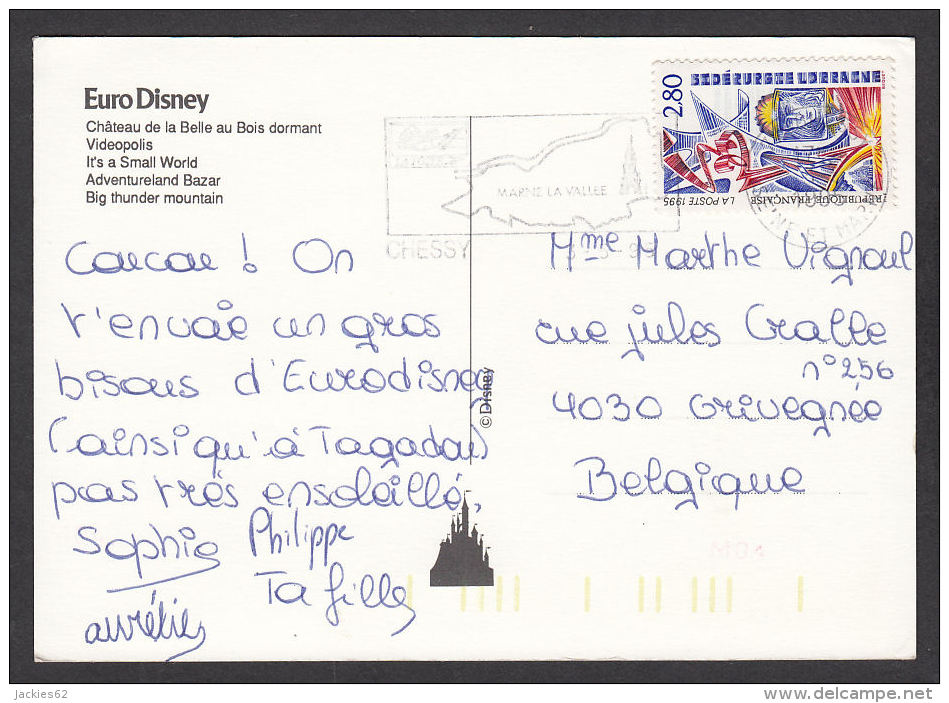 Euro Disney
Château de la Belle au Bois dormant
Videopolis
It's a Small World
Adventureland Bazar
Big thunder mountain
Coucou ! On
t'envoie un gros
bisous d'Eurodisney
(ainsi qu'à Tagada)
pas très ensoleillé,
Sophie Philippe
Ta fille
aurélie
© Disney
MARNE LA VALLEE
CHESSY
SIDÉRURGIE LORRAINE
2,80
RÉPUBLIQUE FRANÇAISE
LA POSTE 1995
Mme Marthe Vignoul
rue jules Cralle
n° 256
4030 Grivegnée
Belgique
jackies62
www.delcampe.net